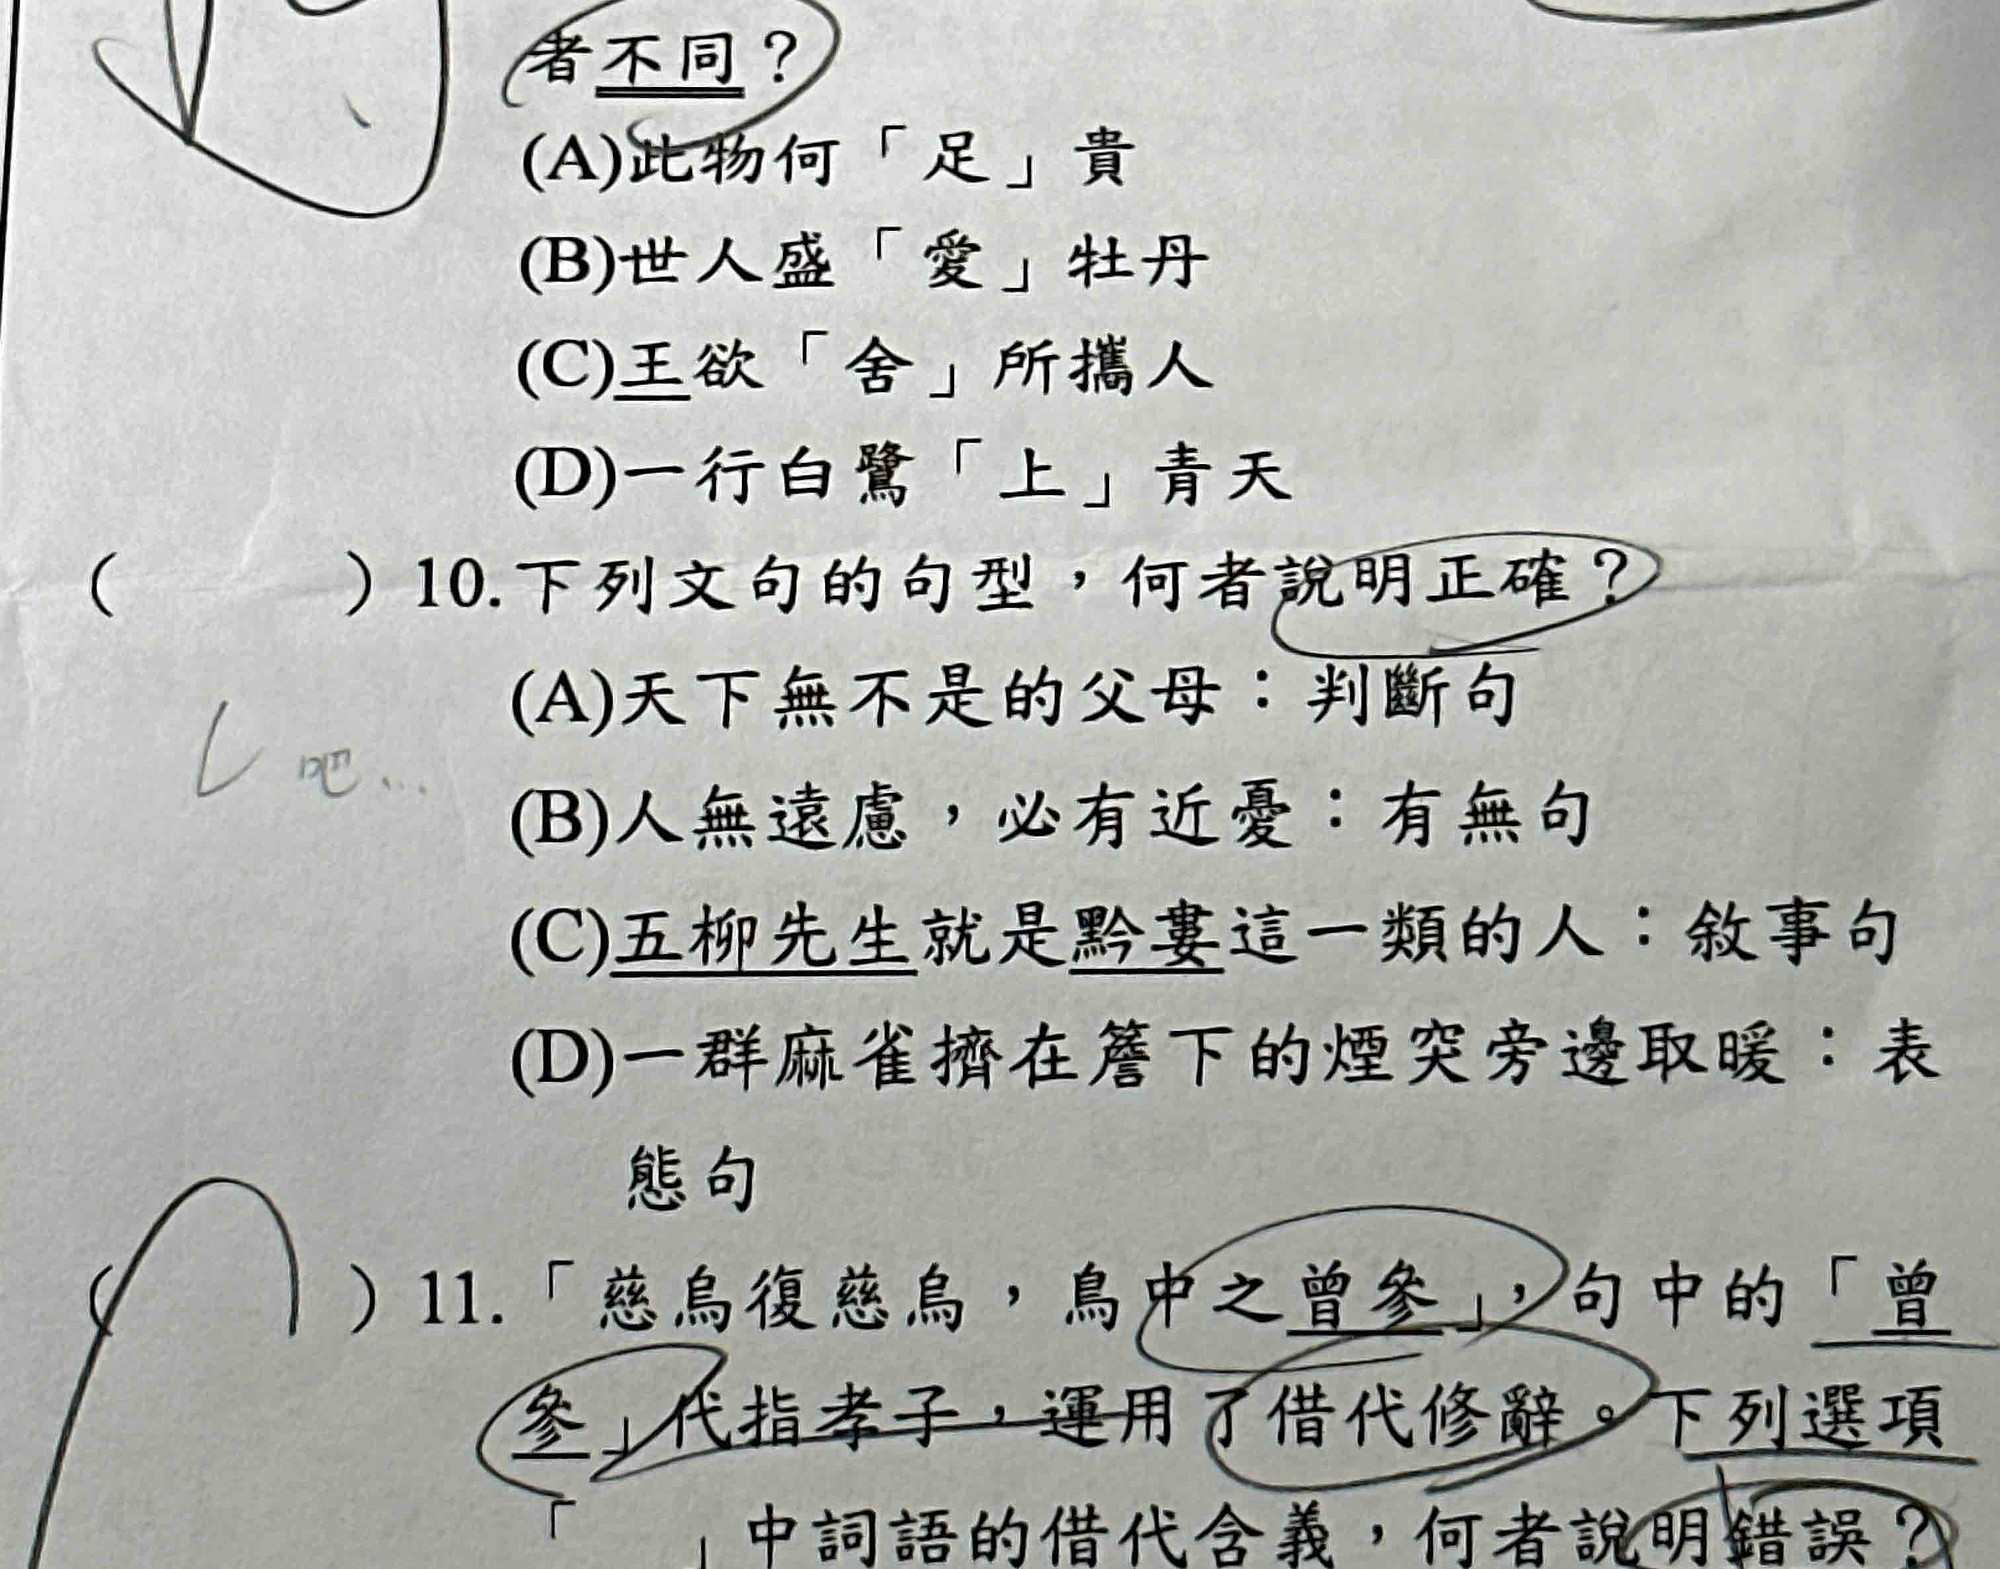 者不同？
(A)此物何「足」貴
(B)世人盛「愛」牡丹
(C)王欲「舍」所攜人
(D)一行白鷺「上」青天
（　　　）10.下列文句的句型，何者說明正確？
(A)天下無不是的父母：判斷句
(B)人無遠慮，必有近憂：有無句
吧…
(C)五柳先生就是黔婁這一類的人：敘事句
(D)一群麻雀擠在簷下的煙突旁邊取暖：表
態句
（　　　）11.「慈烏復慈烏，鳥中之曾參」，句中的「曾
參」代指孝子，運用了借代修辭。下列選項
「　　」中詞語的借代含義，何者說明錯誤？